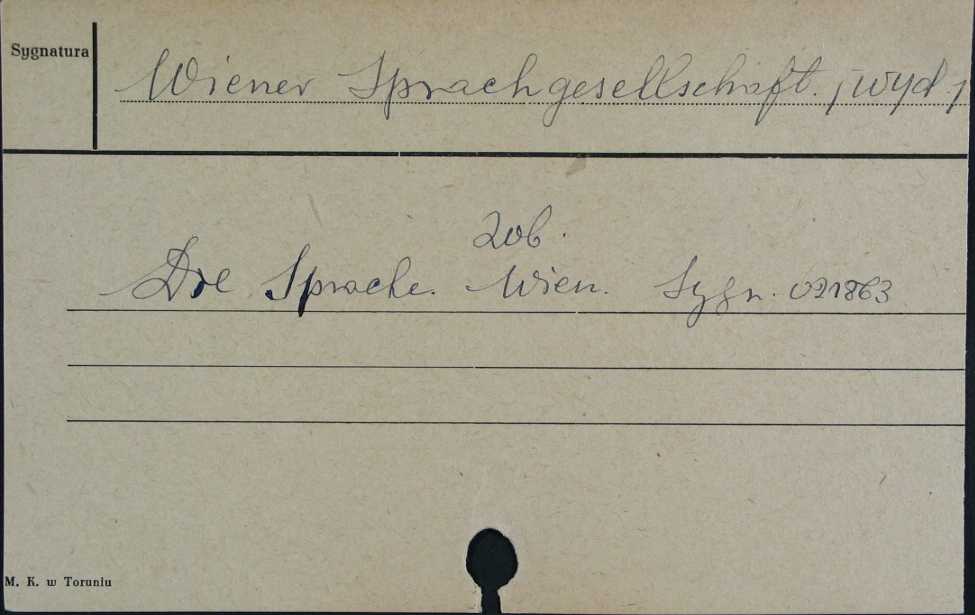 Sygnatura
Wiener Sprachgesellschaft. /wyd./
Zob.
Die Sprache. Wien. Sygn. 021863
M. K. w Toruniu